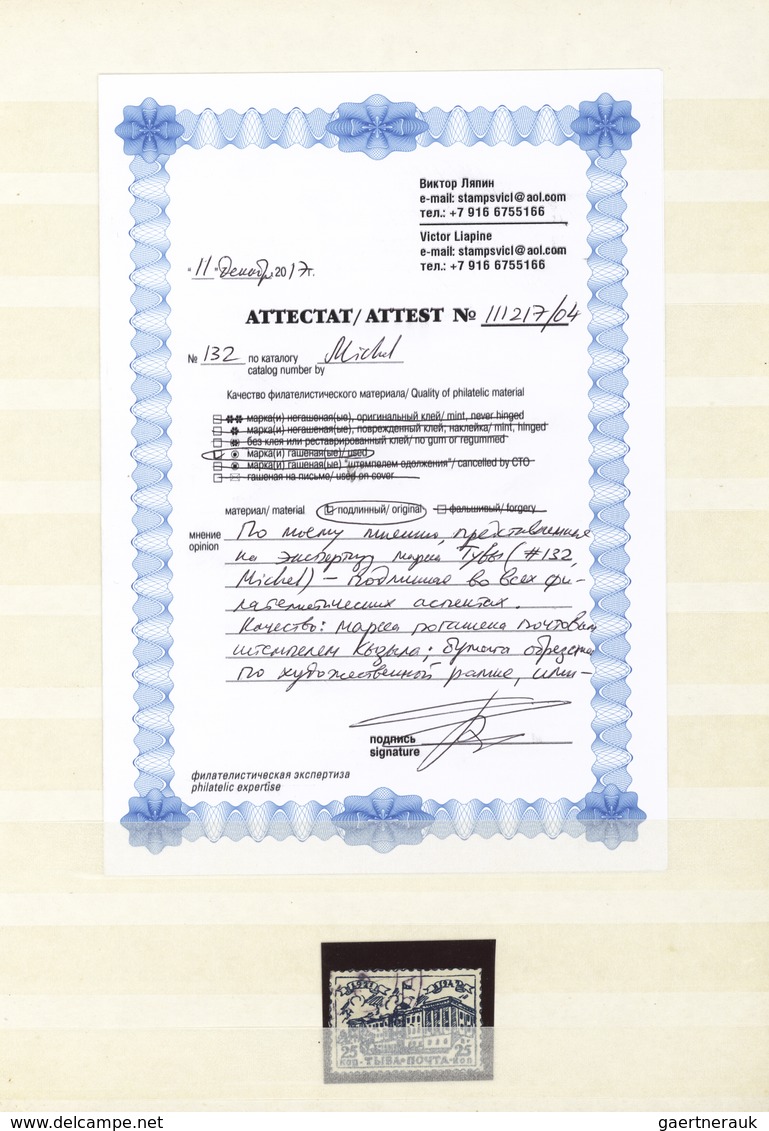 Виктор Ляпин
e-mail: stampsvicl@aol.com
тел.: +7 916 6755166
Victor Liapine
e-mail: stampsvicl@aol.com
тел.: +7 916 6755166
"11" декабр. 2017г.
АТТЕСТАТ/ ATTEST № 111217/04
№ 132 по каталогу Michel
catalog number by
Качество филателистического материала/ Quality of philatelic material
марка(и) негашеная(ые), оригинальный клей/ mint, never hinged
марка(и) негашеная(ые), поврежденный клей, наклейка/ mint, hinged
без клея или реставрированный клей/ no gum or regummed
марка(и) гашеная(ые)/ used
марка(и) гашеная(ые) "штемпелем одолжения"/ cancelled by CTO
гашеная на письме/ used on cover
материал/ material подлинный/ original фальшивый/ forgery
мнение По моему мнению, представленная
opinion на экспертизу марка Тувы (#132,
Michel) – подлинная во всех фи-
лателистических аспектах.
Качество: марка погашена почтовым
штемпелем Кызыла; бумага обрезана
по художественной рамке, или-
подпись
signature
филателистическая экспертиза
philatelic expertise
25 25
коп ТЫВА ПОЧТА коп
delcampe.net
gaertnerauk